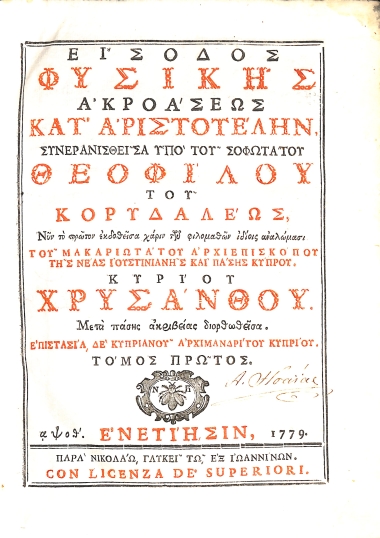 ΕΙ'ΣΟΔΟΣ
ΦΥΣΙΚΗ͂Σ
Α'ΚΡΟΑ'ΣΕΩΣ
ΚΑΤ' Α'ΡΙΣΤΟΤΕ'ΛΗΝ,
ΣΥΝΕΡΑΝΙΣΘΕΙ͂ΣΑ ΥΠΟ' ΤΟΥ͂ ΣΟΦΩΤΑ'ΤΟΥ
ΘΕΟΦΙ'ΛΟΥ
ΤΟΥ͂
ΚΟΡΥΔΑΛΕ'ΩΣ,
Νῦν τὸ πρῶτον ἐκδοθεῖσα χάριν τῶν φιλομαθῶν ἰδίοις ἀναλώμασι
ΤΟΥ͂ ΜΑΚΑΡΙΩΤΑ'ΤΟΥ Α'ΡΧΙΕΠΙΣΚΟ'ΠΟΥ
ΤΗ͂Σ ΝΕ'ΑΣ Ι'ΟΥΣΤΙΝΙΑΝΗ͂Σ ΚΑΙ ΠΑ'ΣΗΣ ΚΥ'ΠΡΟΥ.
ΚΥΡΙ'ΟΥ
ΧΡΥΣΑ'ΝΘΟΥ.
Μετὰ πάσης ἀκριβείας διορθωθεῖσα.
Ε'ΠΙΣΤΑΣΙ'Α, ΔΕ' ΚΥΠΡΙΑΝΟΥ͂ Α'ΡΧΙΜΑΝΔΡΙ'ΤΟΥ ΚΥΠΡΙ'ΟΥ.
ΤΟ'ΜΟΣ ΠΡΩ͂ΤΟΣ.
Ν Π
͵αψοθ'. Ε'ΝΕΤΙ'ΗΣΙΝ, 1779.
ΠΑΡΑ' ΝΙΚΟΛΑ'Ω, ΓΛΥΚΕΙ͂ ΤΩ͂, Ε'Ξ Ι'ΩΑΝΝΙ'ΝΩΝ.
CON LICENZA DE' SUPERIORI.